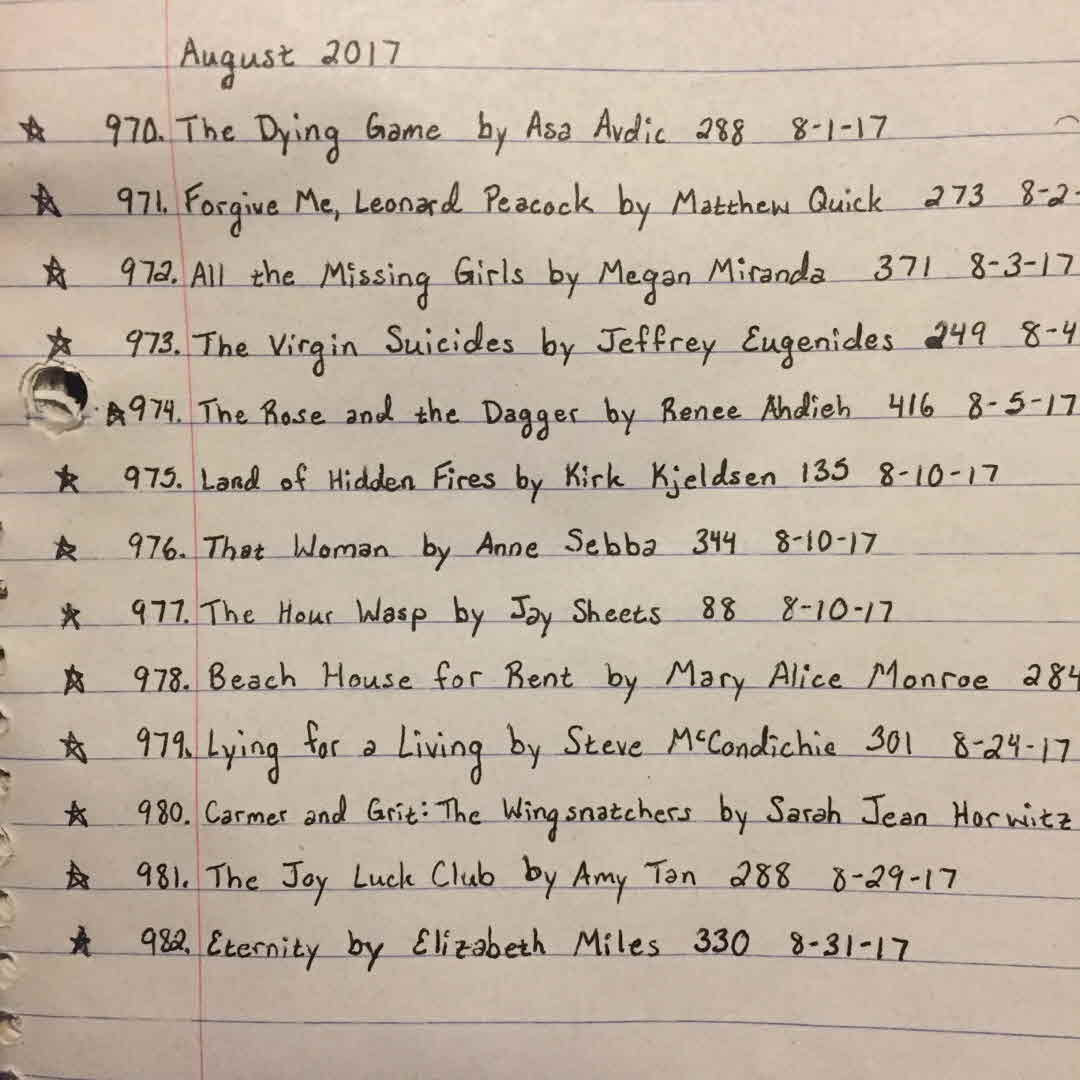 August 2017
970. The Dying Game by Asa Avdic 288 8-1-17
971. Forgive Me, Leonard Peacock by Matthew Quick 273 8-2-
972. All the Missing Girls by Megan Miranda 371 8-3-17
973. The Virgin Suicides by Jeffrey Eugenides 249 8-4
974. The Rose and the Dagger by Renee Ahdieh 416 8-5-17
975. Land of Hidden Fires by Kirk Kjeldsen 135 8-10-17
976. That Woman by Anne Sebba 344 8-10-17
977. The Hour Wasp by Jay Sheets 88 8-10-17
978. Beach House for Rent by Mary Alice Monroe 284
979. Lying for a Living by Steve McCondichie 301 8-24-17
980. Carmer and Grit: The Wingsnatchers by Sarah Jean Horwitz
981. The Joy Luck Club by Amy Tan 288 8-29-17
982. Eternity by Elizabeth Miles 330 8-31-17